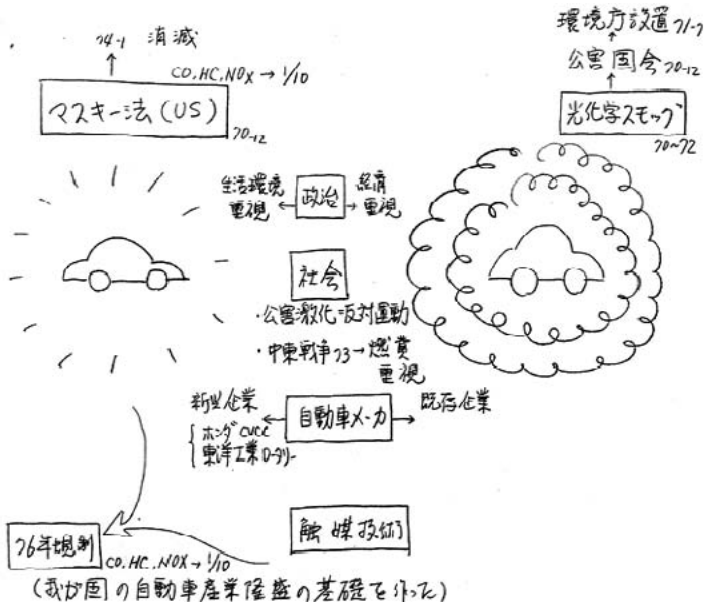 74-1 消滅
CO,HC,NOX → 1/10
マスキー法(US)
70-12
環境庁設置 71-7
公害国会 70-12
光化学スモッグ
70~72
生活環境
重視
政治
経済
重視
社会
・公害激化=反対運動
・中東戦争73→燃費
重視
新興企業
自動車メーカ
既存企業
ホンダ CVCC
東洋工業ロータリー
触媒技術
76年規制
CO.HC.NOX → 1/10
(我が国の自動車産業隆盛の基礎を作った)